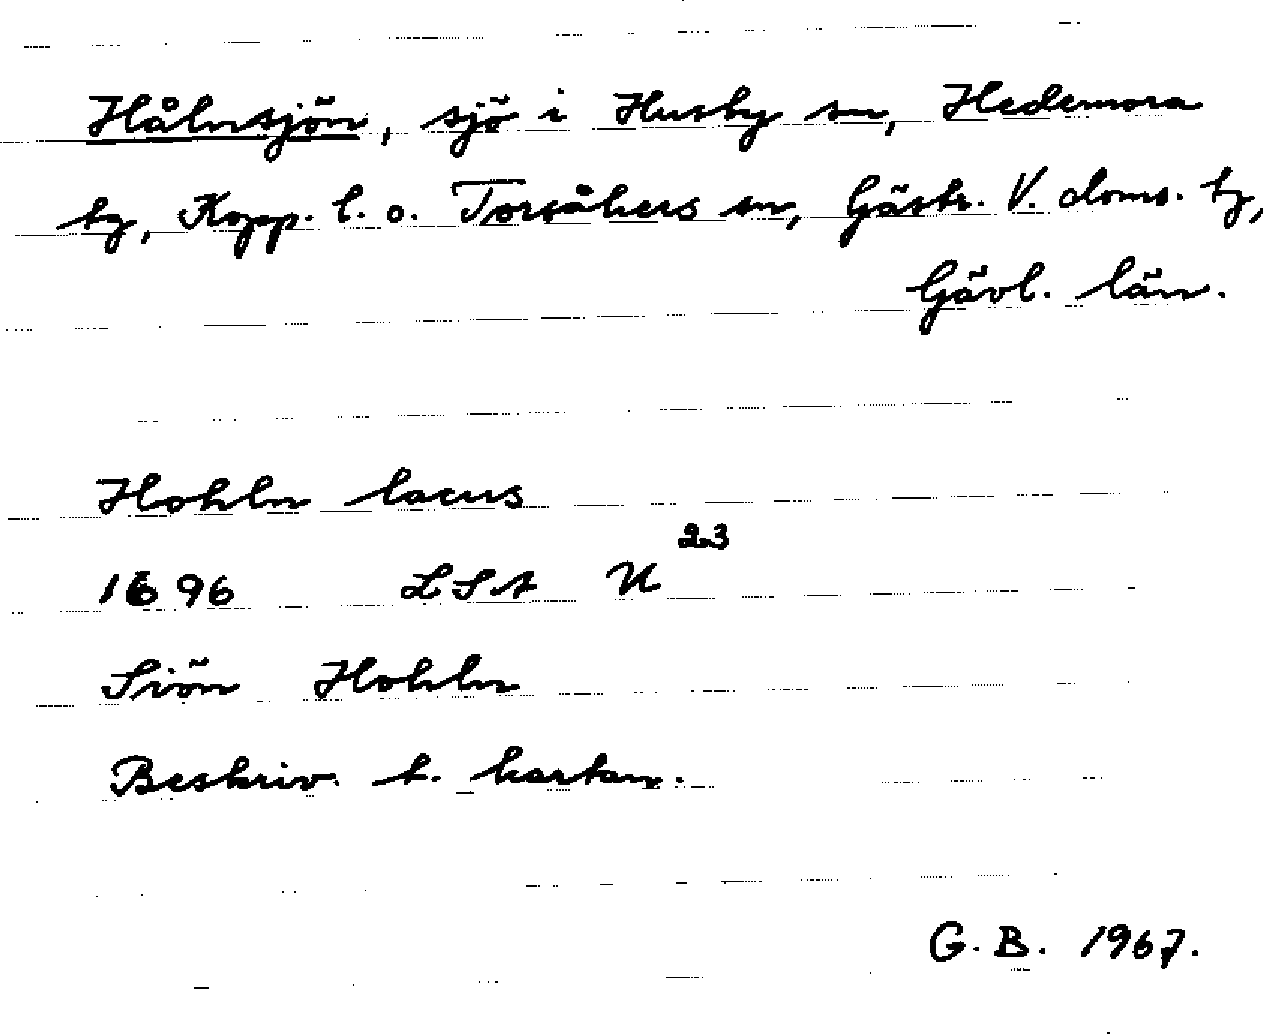 Hålnsjön, sjö i Husby sn, Hedemora
tg, Kopp. l. o. Torsåkers sn, Gästr. V. doms. tg,
Gävl. län.
Hohln lacus
1696 LSA U 23
Siön Hohln
Beskriv. t. kartan.
G. B. 1967.